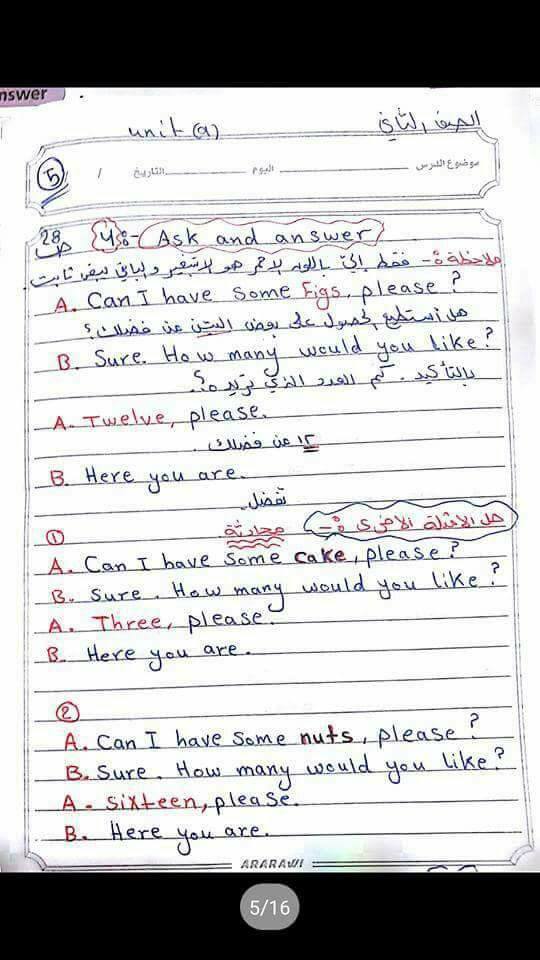 nswer
unit (9)
الصف الثاني
5
موضوع الدرس
اليوم
التاريخ /
28 ص 4:- Ask and answer
ملاحظة :- فقط إلي باللون الاحمر هو لا تتغير والباقي يبقى ثابت
A. Can I have some Figs, please?
هل أستطيع الحصول على بعض التين من فضلك؟
B. Sure. How many would you like?
بالتأكيد. كم العدد الذي تريده؟
A. Twelve, please.
١٢ من فضلك.
B. Here you are.
تفضل
حل الامثلة الاخرى :-
① محادثة
A. Can I have some cake, please?
B. Sure. How many would you like?
A. Three, please.
B. Here you are.
②
A. Can I have some nuts, please?
B. Sure. How many would you like?
A- sixteen, please.
B. Here you are.
ARARAWI
5/16